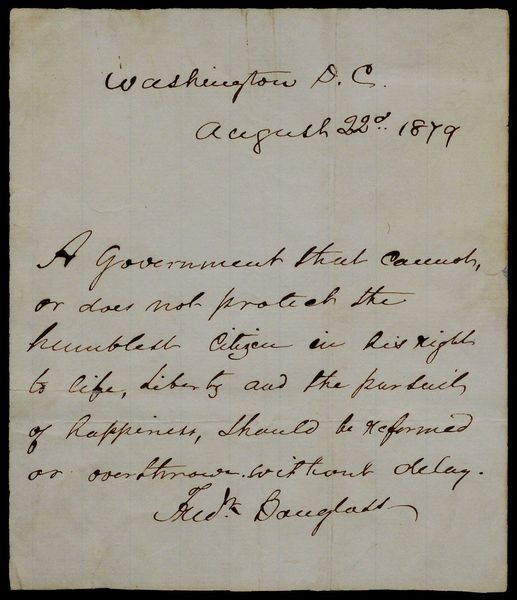 Washington D. C.
August 22d. 1879
A Government that cannot,
or does not protect the
humblest citizen in his right
to life, liberty and the pursuit
of happiness, should be reformed
or overthrown without delay.
Fredk Douglass